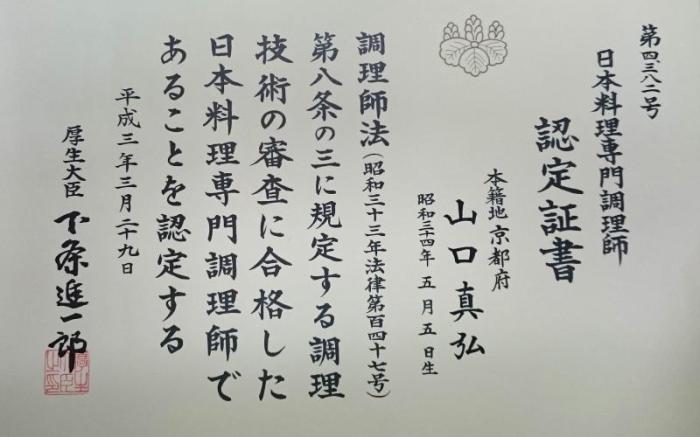 第四三八二号
日本料理専門調理師
認定証書
本籍地 京都府
山口真弘
昭和三十四年 五月五日生
調理師法(昭和三十三年法律第百四十七号)
第八条の三に規定する調理
技術の審査に合格した
日本料理専門調理師で
あることを認定する
平成三年三月二十九日
厚生大臣 下条進一郎